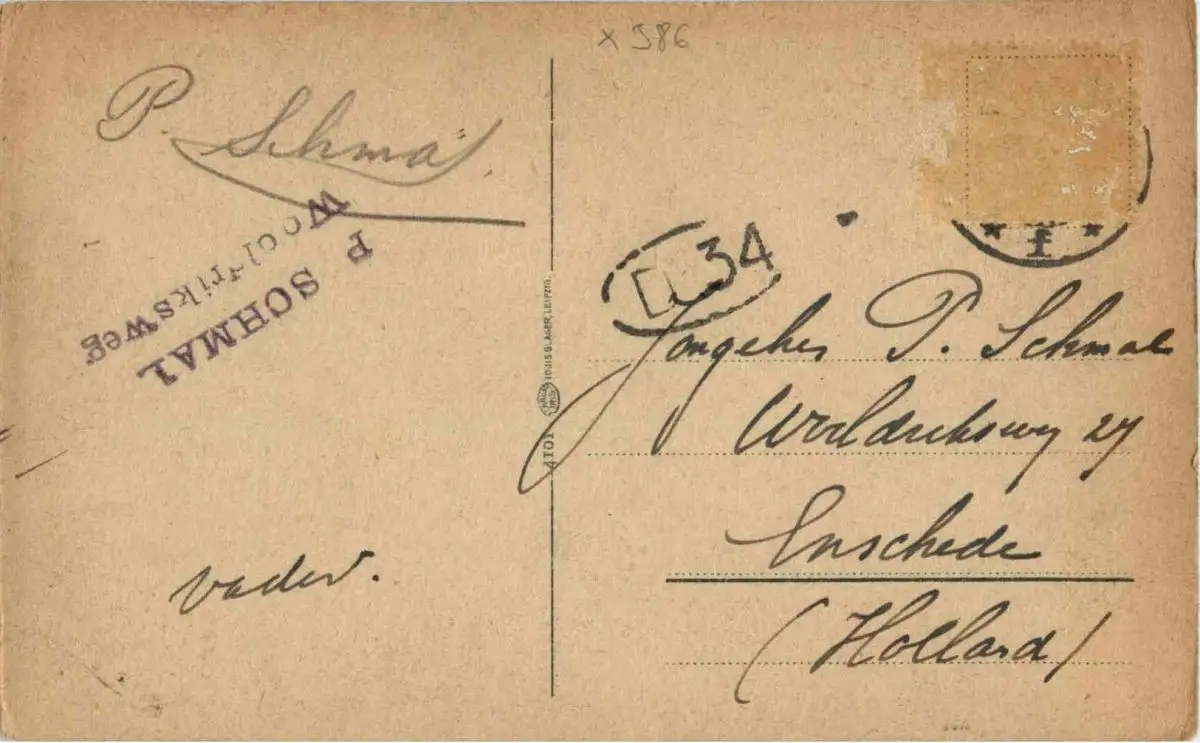 x 386
P. Schmal
P SCHMAL
Wooldriksweg
vader.
LOUIS GLASER, LEIPZIG.
34
f
Jongeheer P. Schmal
Wooldriksweg 27
Enschede
(Holland)